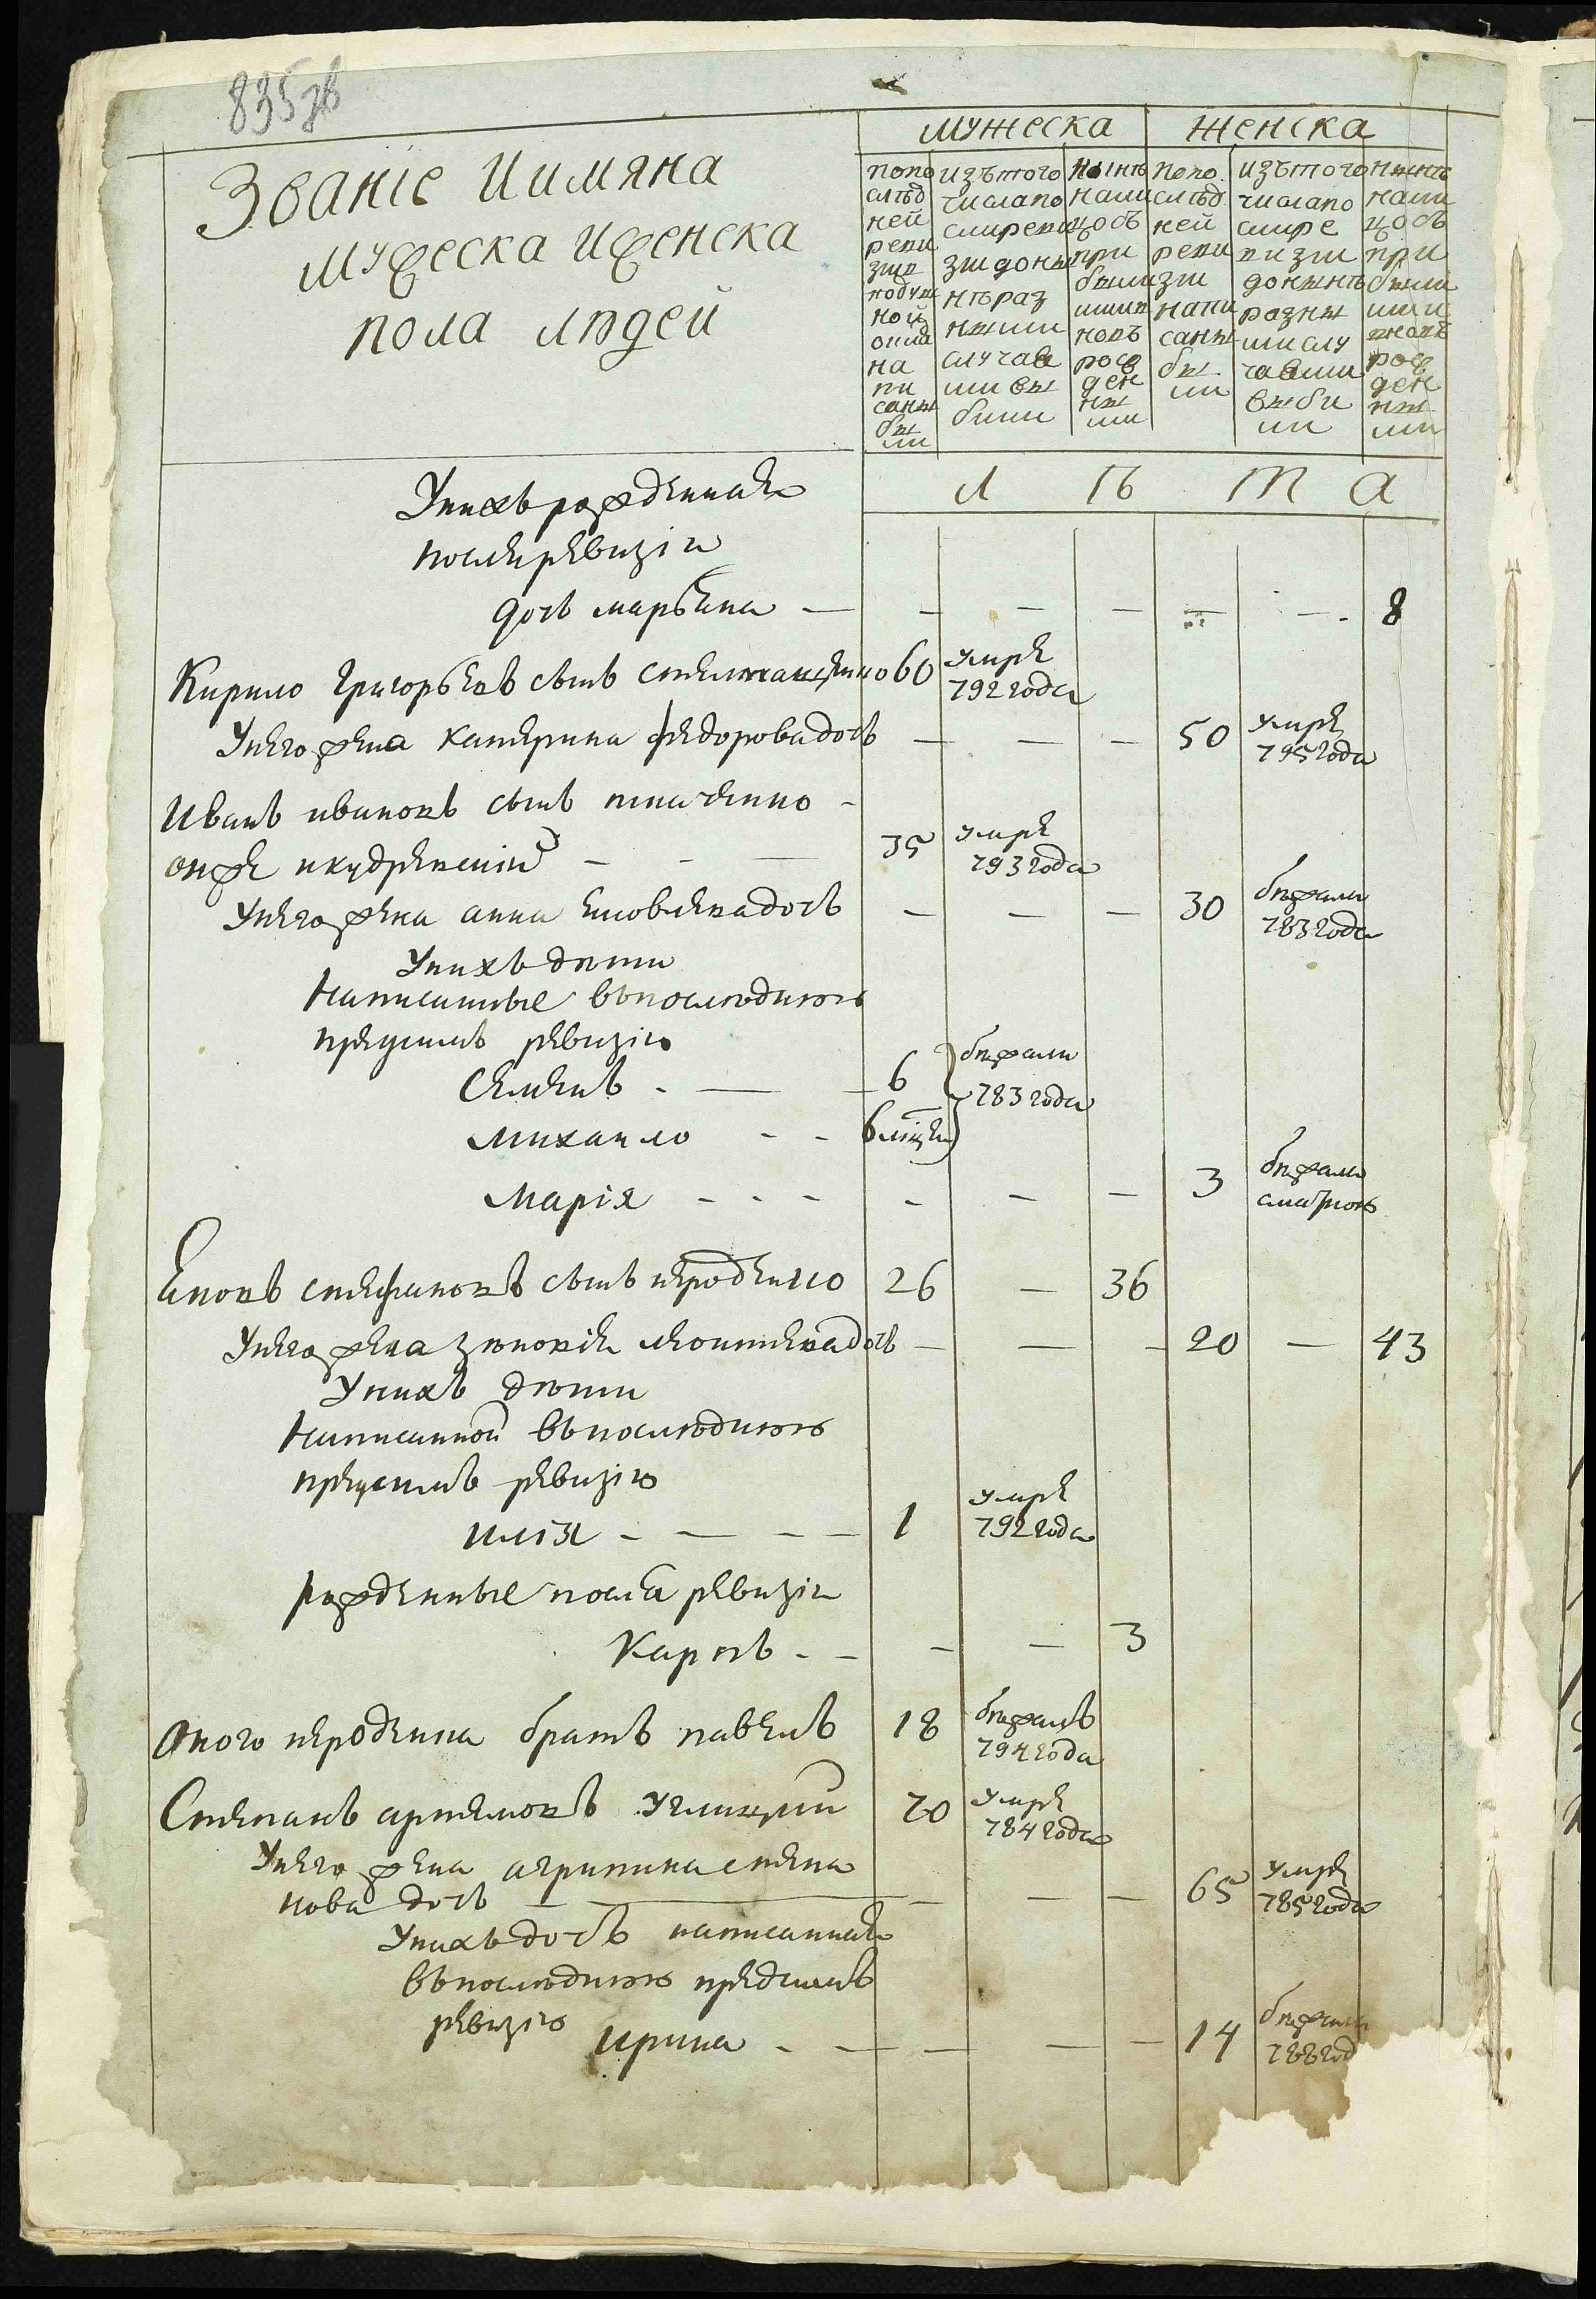 835зв
Званіе Иимяна
мужеска иженска
пола людей
мужеска женска
попо
слѣд
ней
реви
зіи
подуш
ной
окла
на
пи
саны
бы
ли
изътого
числапо
слиреви
зіи доны
нѣраз
ными
случая
ми вы
были
Нынѣ
нали
цосъ
при
былы
ми
рож
ден
ны
ми
попо
слѣд
ней
реви
зіи
напи
саны
бы
ли
изътого
числапо
слире
визіи
донынѣ
разны
мислу
чаями
выбы
ли
нынѣ
нали
цосъ
при
былы
ми
рож
ден
ны
ми
Л ѣ т а
Унихъ рожденная
послиревизіи
дочь марѣяна — — — — — — 8
Кирило Григорьевъ сынъ 60 умре
792 года
Унего жена катерина федоровадочь — — — 50 умре
795 года
Иванъ ивановъ сынъ ткаченко -
онже икудревскій — — 35 умре
793 года
Унего жена анна дочь — — — 30 бежали
783 года
Унихъ дѣти
Написанные въпослѣднюю
предсимъ ревизію
Семенъ - — 6 бежали
михайло - - 6 мцъ 783 года
марія - - - - — — 3 бежала
сматрью
степановъ сынъ 26 — 36
Унего жена зѣновія дочь — — - 20 — 43
Унихъ дѣти
Написанной въпослѣднюю
предсимъ ревизію
илія - — - — 1 умре
792 года
рожденные после ревизіи
Карпъ - - - — 3
Оного братъ павелъ 18 бежалъ
794 года
Степанъ артемовъ 70 умре
784 года
Унего жена агрипина степа
нова дочь — — — — 65 умре
785 года
Унихъ дочь написанная
въпослѣднюю предсимъ
ревизію
ирина - — — — — 14 бежала
788 год